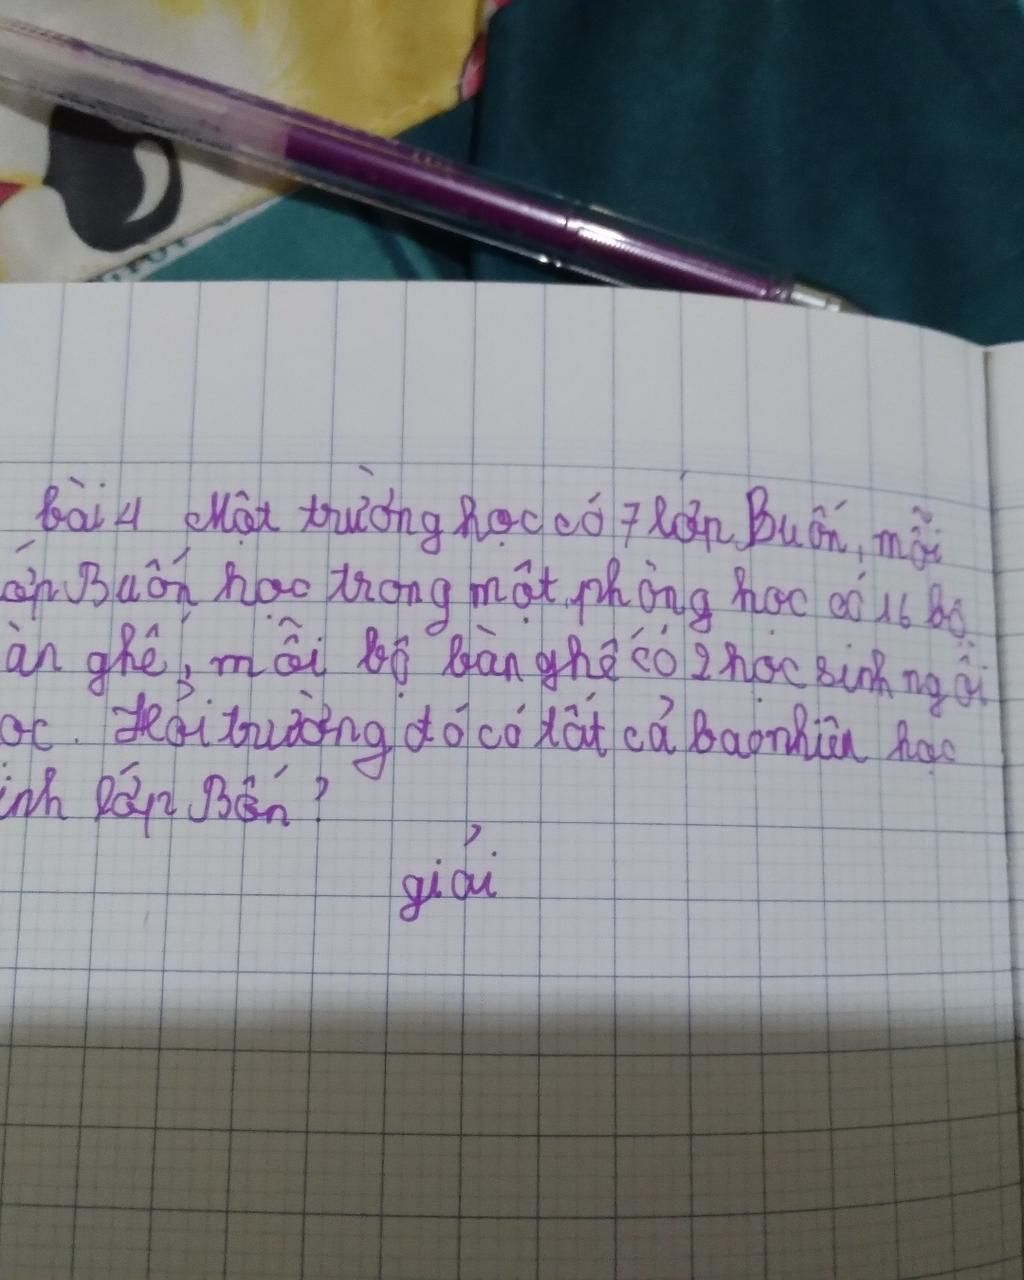 bài 4 Một trường học có 7 lớp Buốn, mỗi
ớp Buốn học trong một phòng học có 16 bộ
àn ghế, mỗi bộ bàn ghế có 2 học sinh ngồi
ọc. Hỏi trường đó có tất cả bao nhiêu học
inh lớp Bốn?
giải